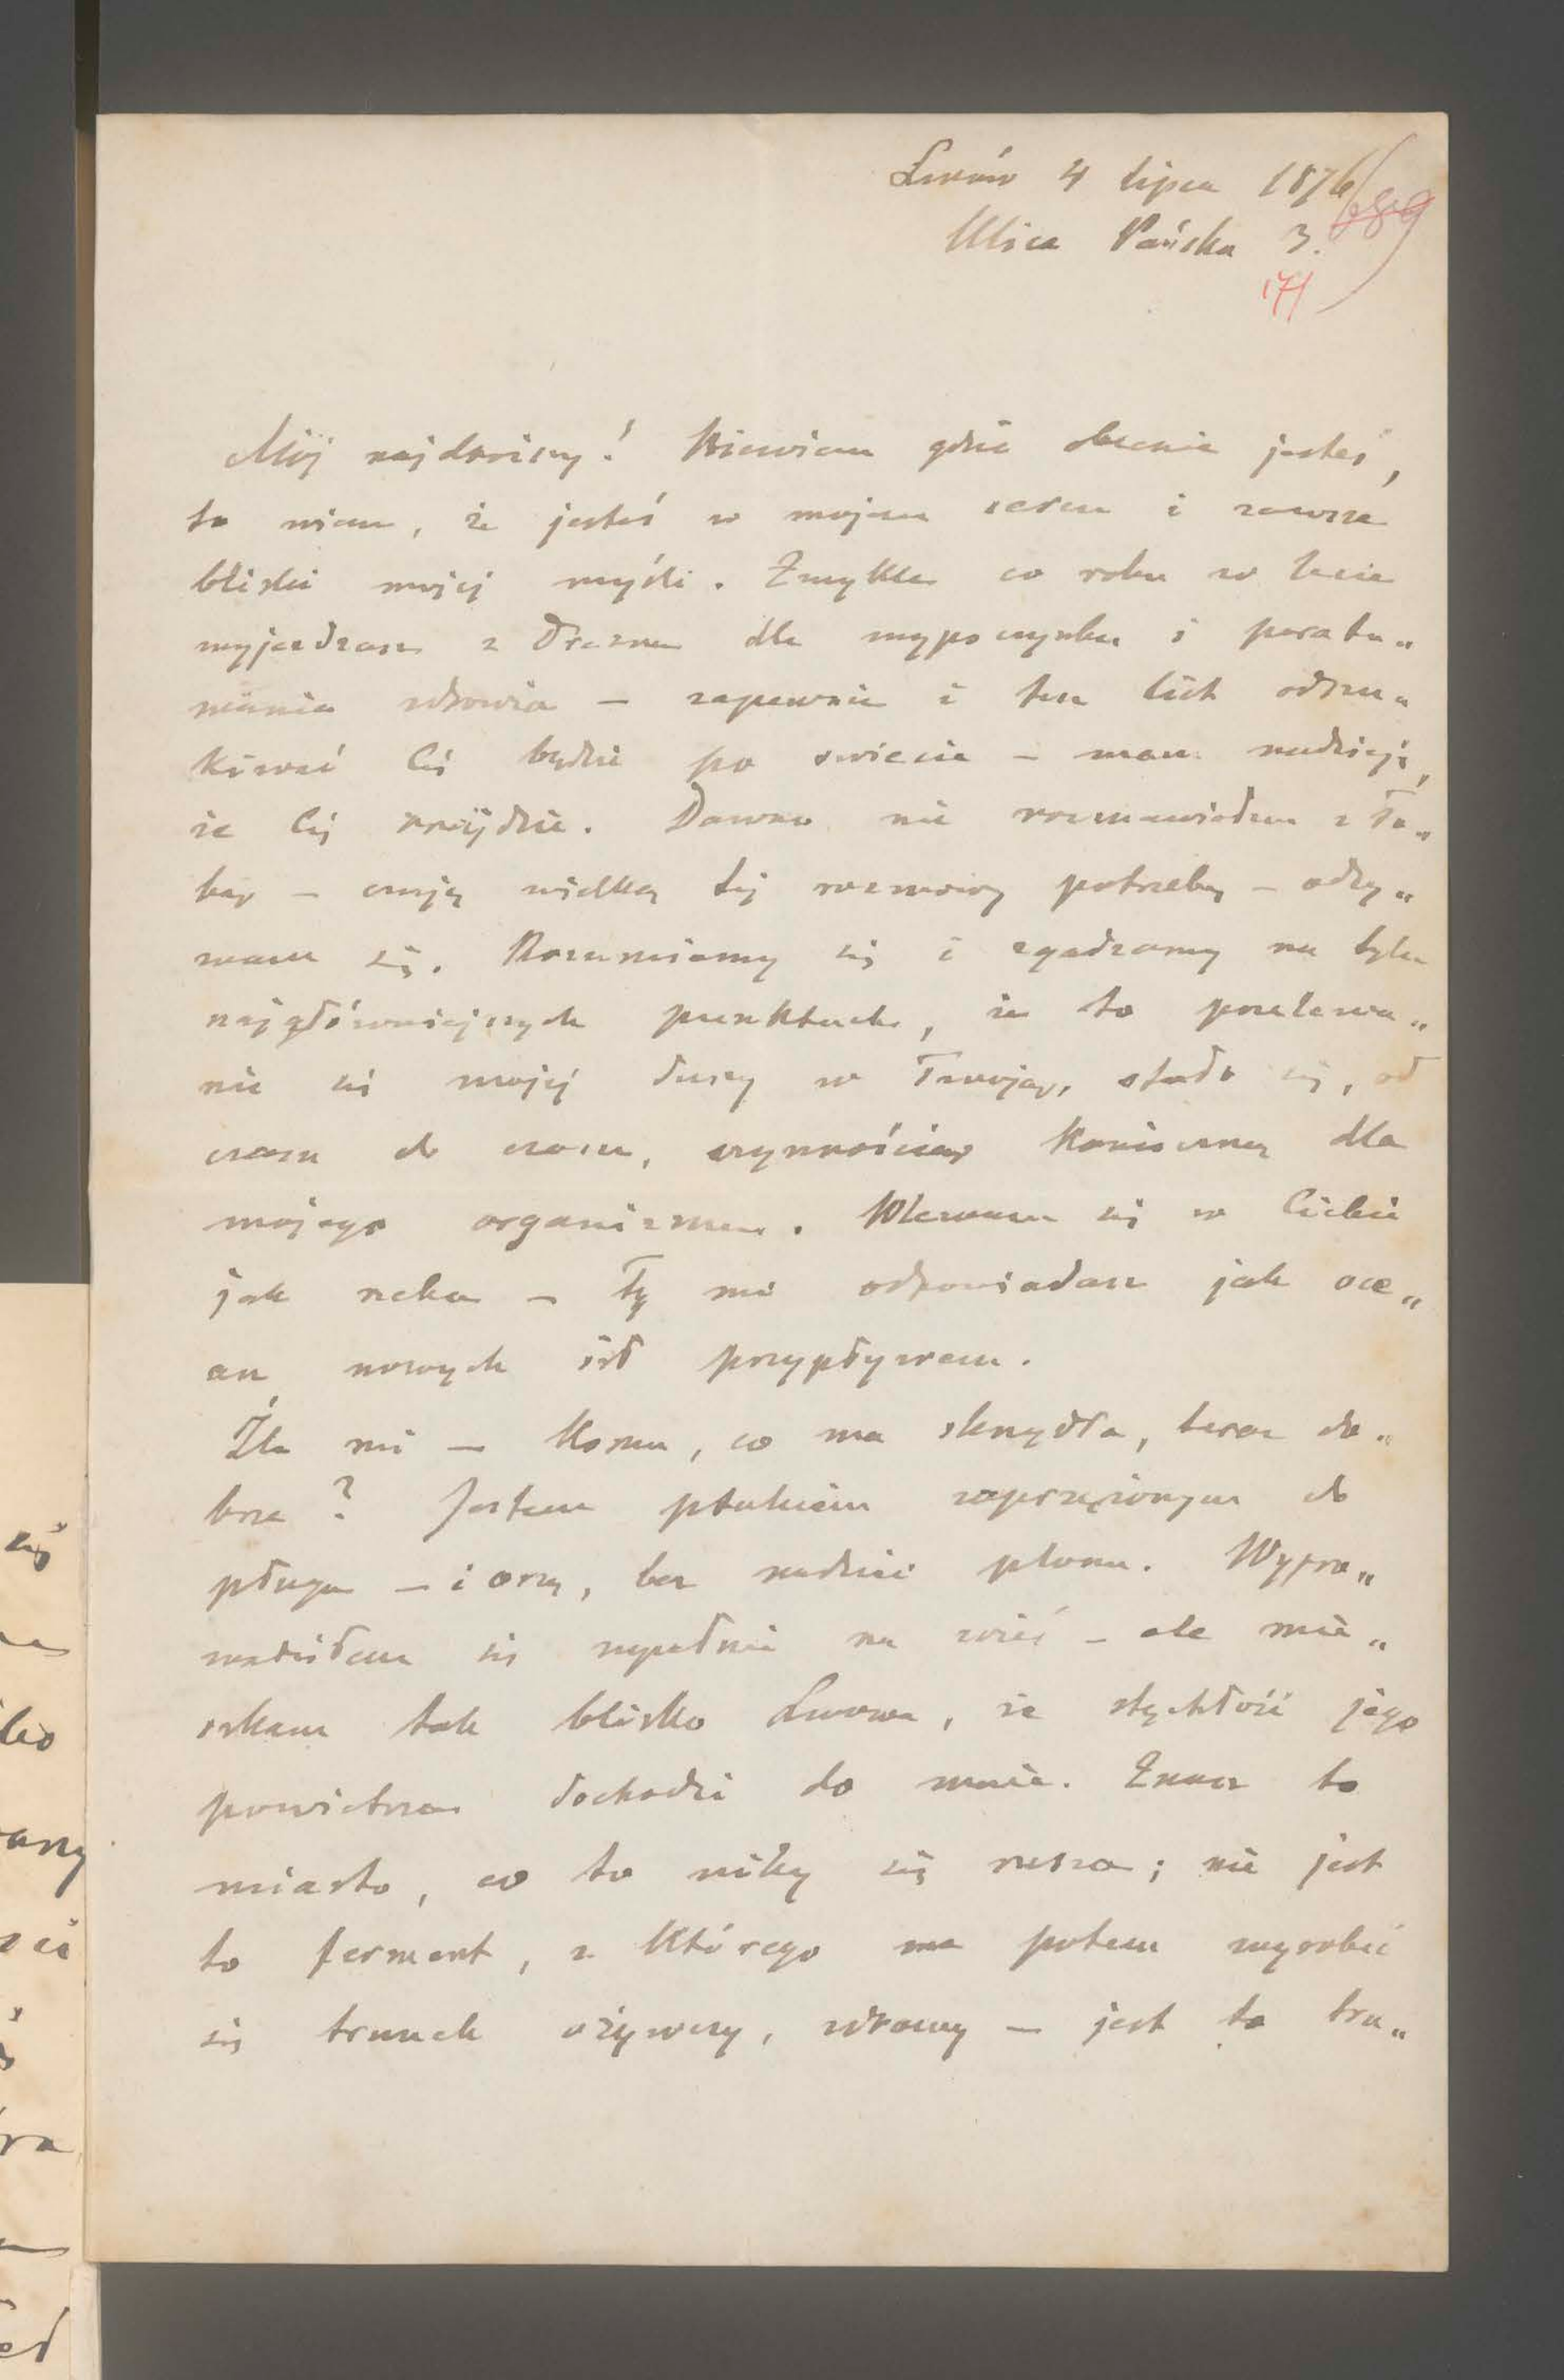 Lwów 4 lipca 1876
Ulica Pańska 3.
689
171
Mój najdroższy! Niewiem gdzie obecnie jesteś,
to wiem, że jesteś w mojem sercu i zawsze
bliski mojej myśli. Zwykle co roku w lecie
wyjeżdzasz z Drezna dla wypoczynku i porato„
wania zdrowia – zapewnie i ten list odszu„
kiwać Cię będzie po swiecie – mam nadzieję,
że Cię znajdzie. Dawno nie rozmawiałem z To„
bą – czuję wielką tej rozmowy potrzebę – odzy„
wam się. Rozumiemy się i zgadzamy na tylu
najgłówniejszych punktach, że to przelewa„
nie się mojej duszy w Twoją, stało się, od
czasu do czasu, czynnością konieczną dla
mojego organizmu. Wlewam się w Ciebie
jak rzeka – Ty mi odpowiadasz jak oce„
an nowych sił przypływem.
Źle mi – komu, co ma skrzydła, teraz do„
brze? Jestem ptakiem zaprzężonym do
pługa – i orzę, bez nadziei plonu. Wypro„
wadziłem się zupełnie na wieś – ale mie„
szkam tak blisko Lwowa, że stęchłość jego
powietrza dochodzi do mnie. Znasz to
miasto, co to niby się rusza; nie jest
to ferment, z którego ma potem wyrobić
się trunek ożywczy, zdrowy – jest to tru„